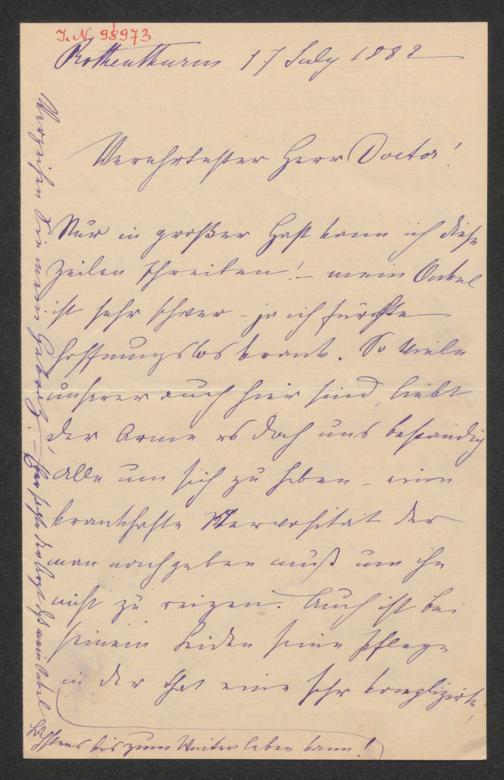 I.N. 98973
Rothenthurm 17 July 1882
Verehrtester Herr Doctor!
Nur in großer Hast kann ich diese
Zeilen schreiben! – mein Onkel
ist sehr schwer – ja ich fürchte
hoffnungslos krank. So viele
unserer auch hier sind, liebt
der Arme es doch uns bestaendig
Alle um sich zu haben – eine
krankhafte Nervosität der
man nachgeben muß um ihn
nicht zu reizen. Auch ist bei
seinem Leiden seine Pflege
in der That eine sehr komplizirte,
Verzeihen Sie mein
mein Onkel
höchstens bis zum Winter leben kann!